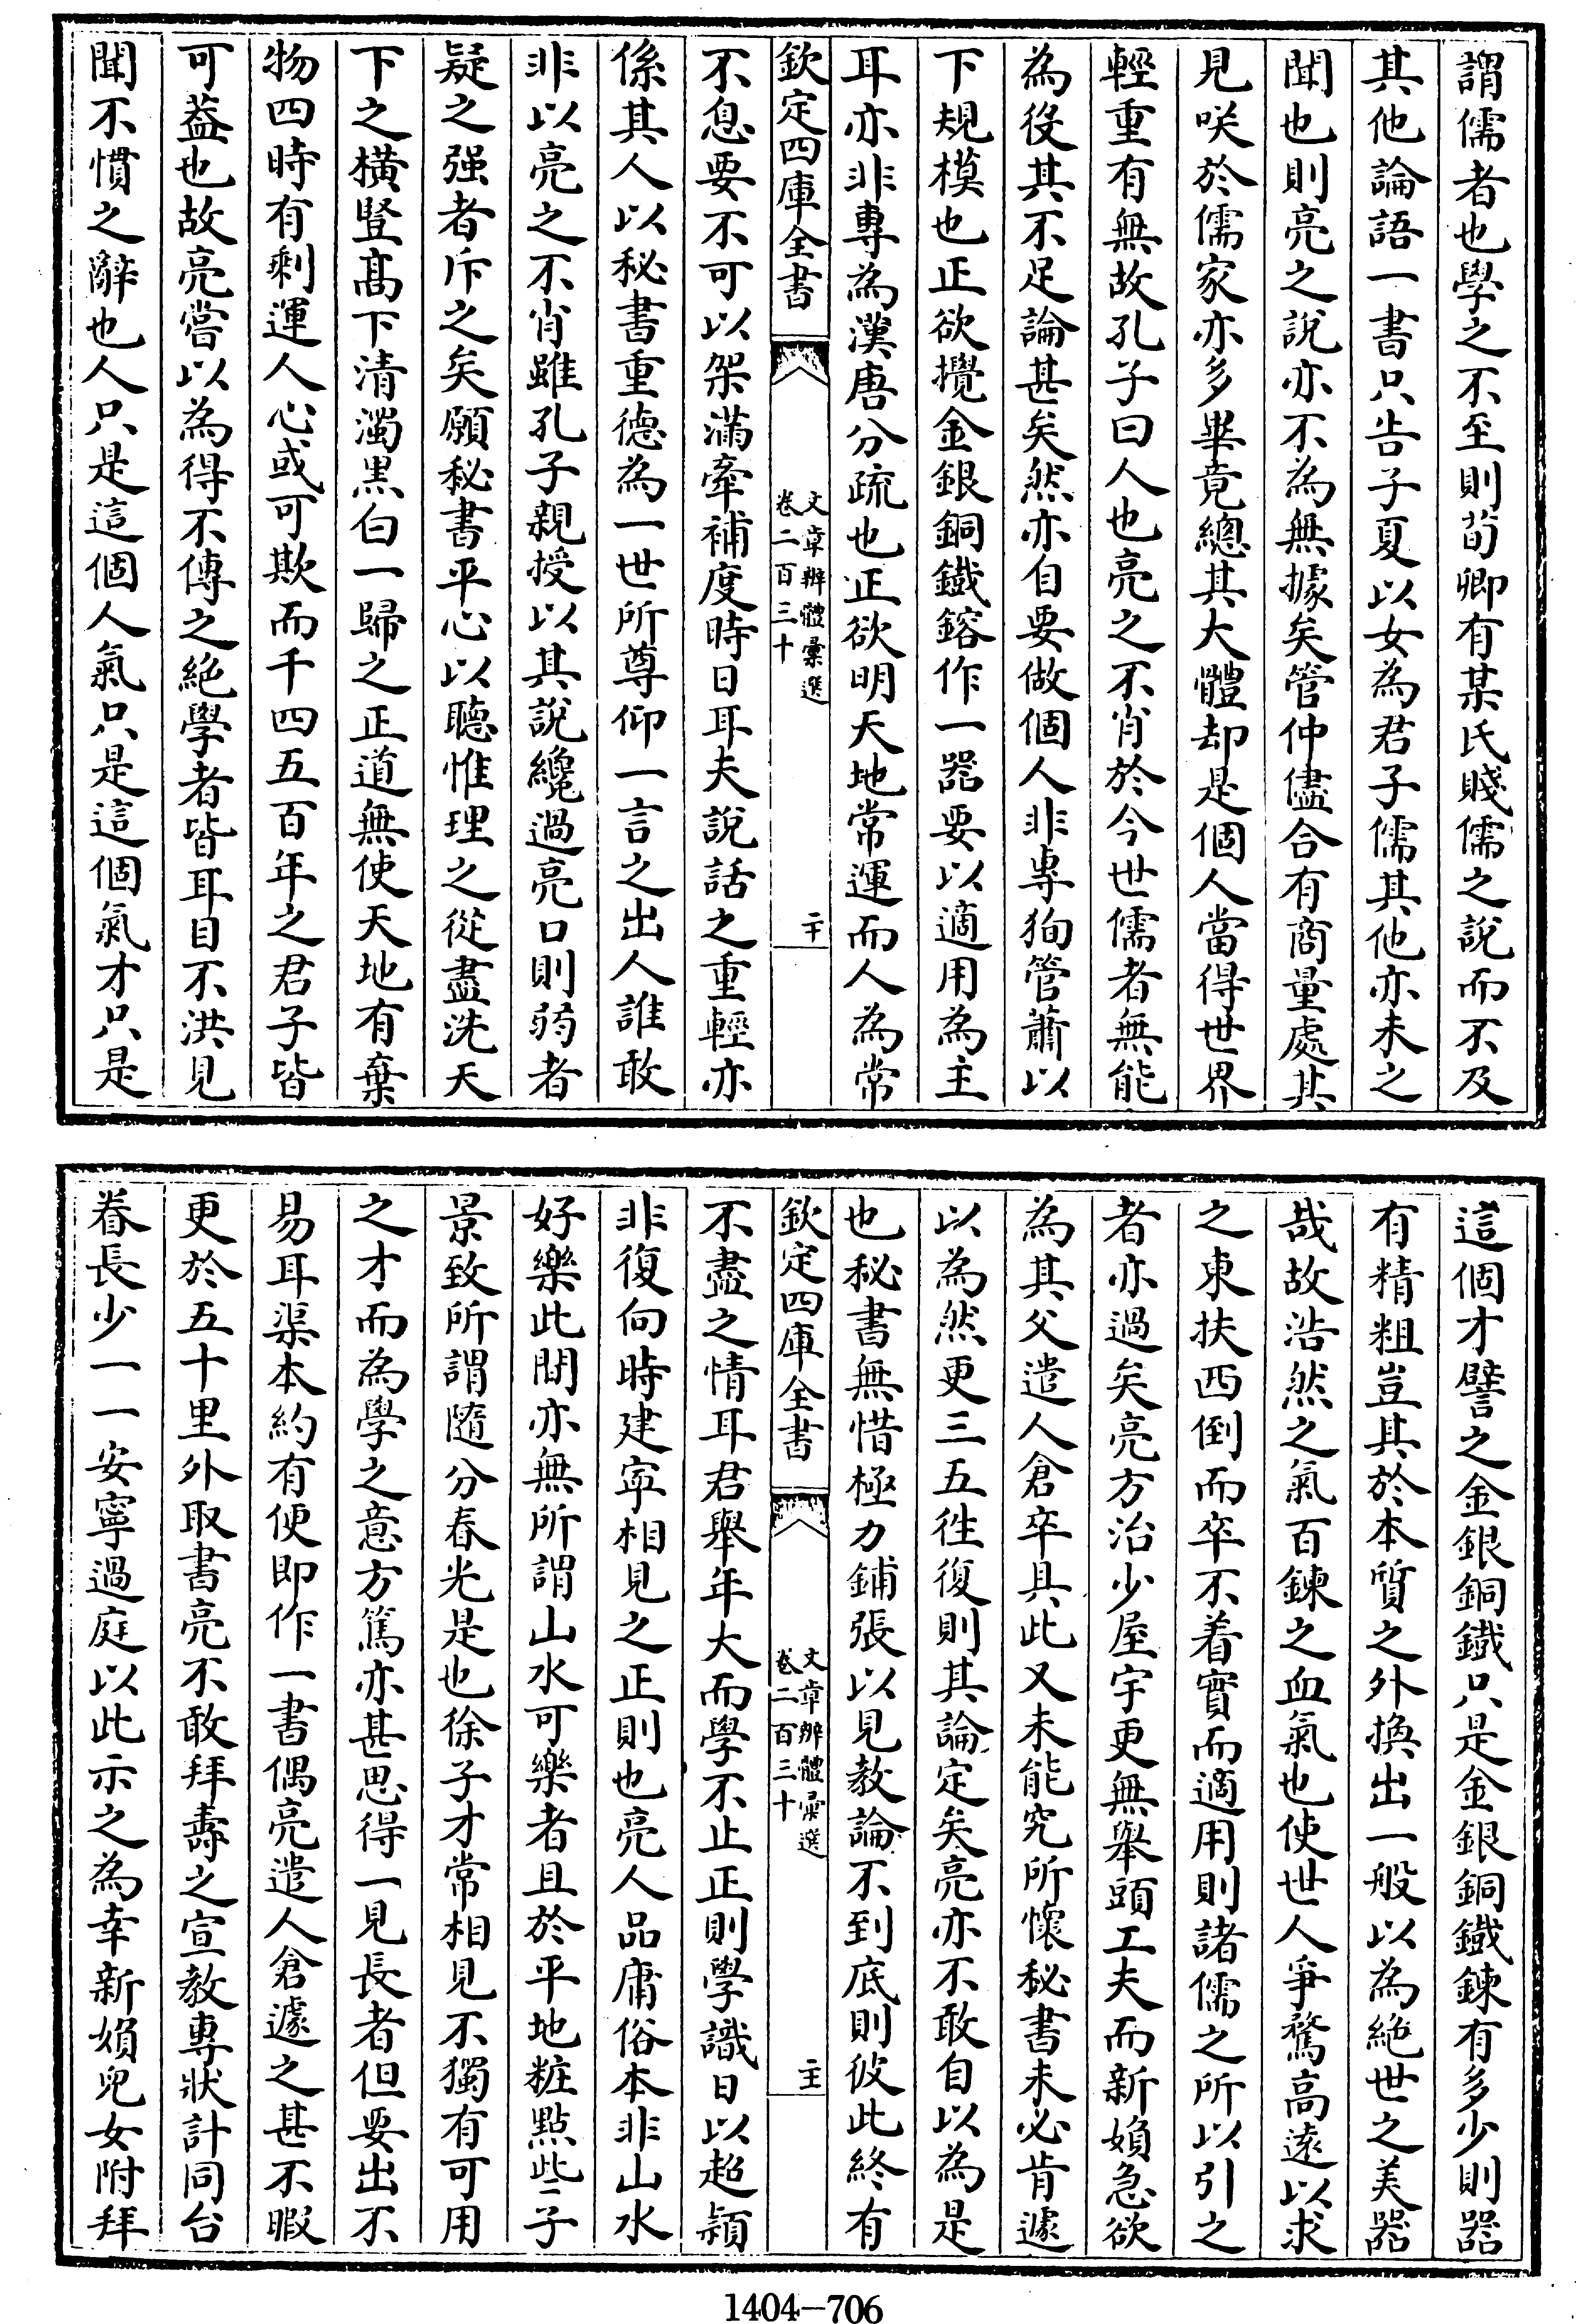 謂儒者也學之不至則荀卿有某氏賤儒之說而不及
其他論語一書只告子夏以女為君子儒其他亦未之
聞也則亮之說亦不為無據矣管仲儘合有商量處其
見咲於儒家亦多畢竟總其大體却是個人當得世界
輕重有無故孔子曰人也亮之不肖於今世儒者無能
為役其不足論甚矣然亦自要做個人非專狥管蕭以
下規模也正欲攪金銀銅鐵鎔作一器要以適用為主
耳亦非專為漢唐分疏也正欲明天地常運而人為常
欽定四庫全書
文章辨體彙選
卷二百三十
二十
不息要不可以架滿牽補度時日耳夫說話之重輕亦
係其人以秘書重德為一世所尊仰一言之出人誰敢
非以亮之不肖雖孔子親授以其說纔過亮口則弱者
疑之强者斥之矣願秘書平心以聽惟理之從盡洗天
下之橫豎髙下清濁黒白一歸之正道無使天地有棄
物四時有剩運人心或可欺而千四五百年之君子皆
可葢也故亮嘗以為得不傳之絶學者皆耳目不洪見
聞不慣之辭也人只是這個人氣只是這個氣才只是
這個才譬之金銀銅鐵只是金銀銅鐵鍊有多少則器
有精粗豈其於本質之外換出一般以為絶世之美器
哉故浩然之氣百鍊之血氣也使世人爭騖高逺以求
之東扶西倒而卒不着實而適用則諸儒之所以引之
者亦過矣亮方治少屋宇更無舉頭工夫而新媍急欲
為其父遣人倉卒具此又未能究所懷秘書未必肯遽
以為然更三五徃復則其論定矣亮亦不敢自以為是
也秘書無惜極力鋪張以見教論不到底則彼此終有
欽定四庫全書
文章辨體彙選
卷二百三十
二十一
不盡之情耳君舉年大而學不止正則學識日以超穎
非復向時建寧相見之正則也亮人品庸俗本非山水
好樂此間亦無所謂山水可樂者且於平地粧點些子
景致所謂隨分春光是也徐子才常相見不獨有可用
之才而為學之意方篤亦甚思得一見長者但要出不
易耳渠本約有便即作一書偶亮遣人倉遽之甚不暇
更於五十里外取書亮不敢拜壽之宣教專狀計同台
眷長少一一安寧過庭以此示之為幸新媍兒女附拜
1404-706